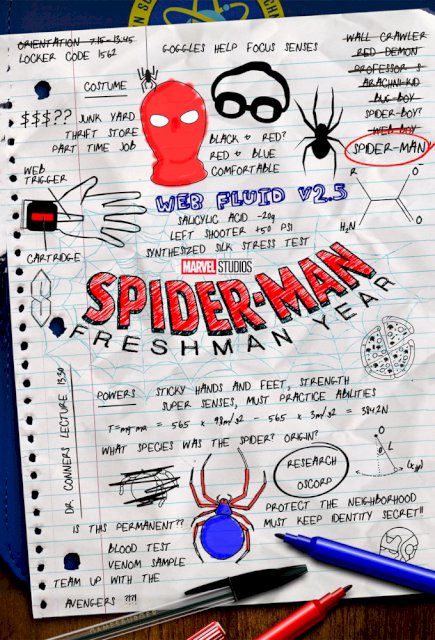 ORIENTATION 7:15-13:45
LOCKER CODE 1562
GOGGLES HELP FOCUS SENSES
WALL CRAWLER
RED DEMON
PROFESSOR S
ARACHNI-KID
BUG-BOY
SPIDER-BOY?
WEB-BOY
SPIDER-MAN
COSTUME
$$$??
JUNK YARD
THRIFT STORE
PART TIME JOB
BLACK & RED?
RED & BLUE
COMFORTABLE
WEB
TRIGGER
CARTRIDGE
WEB FLUID V2.5
SALICYLIC ACID -20g
LEFT SHOOTER +50 PSI
SYNTHESIZED SILK STRESS TEST
R
O
H₂N
O
MARVEL STUDIOS
SPIDER-MAN
FRESHMAN YEAR
DR. CONNERS LECTURE 13:30
POWERS
STICKY HANDS AND FEET, STRENGTH
SUPER SENSES, MUST PRACTICE ABILITIES
= 565 x 9.8m/s2 - 565 x 3m/s2 = 3842N
WHAT SPECIES WAS THE SPIDER? ORIGIN?
RESEARCH
OSCORP
O
L
(x,y)
PROTECT THE NEIGHBORHOOD
MUST KEEP IDENTITY SECRET!!
IS THIS PERMANENT??
BLOOD TEST
VENOM SAMPLE
TEAM UP WITH THE
AVENGERS ????